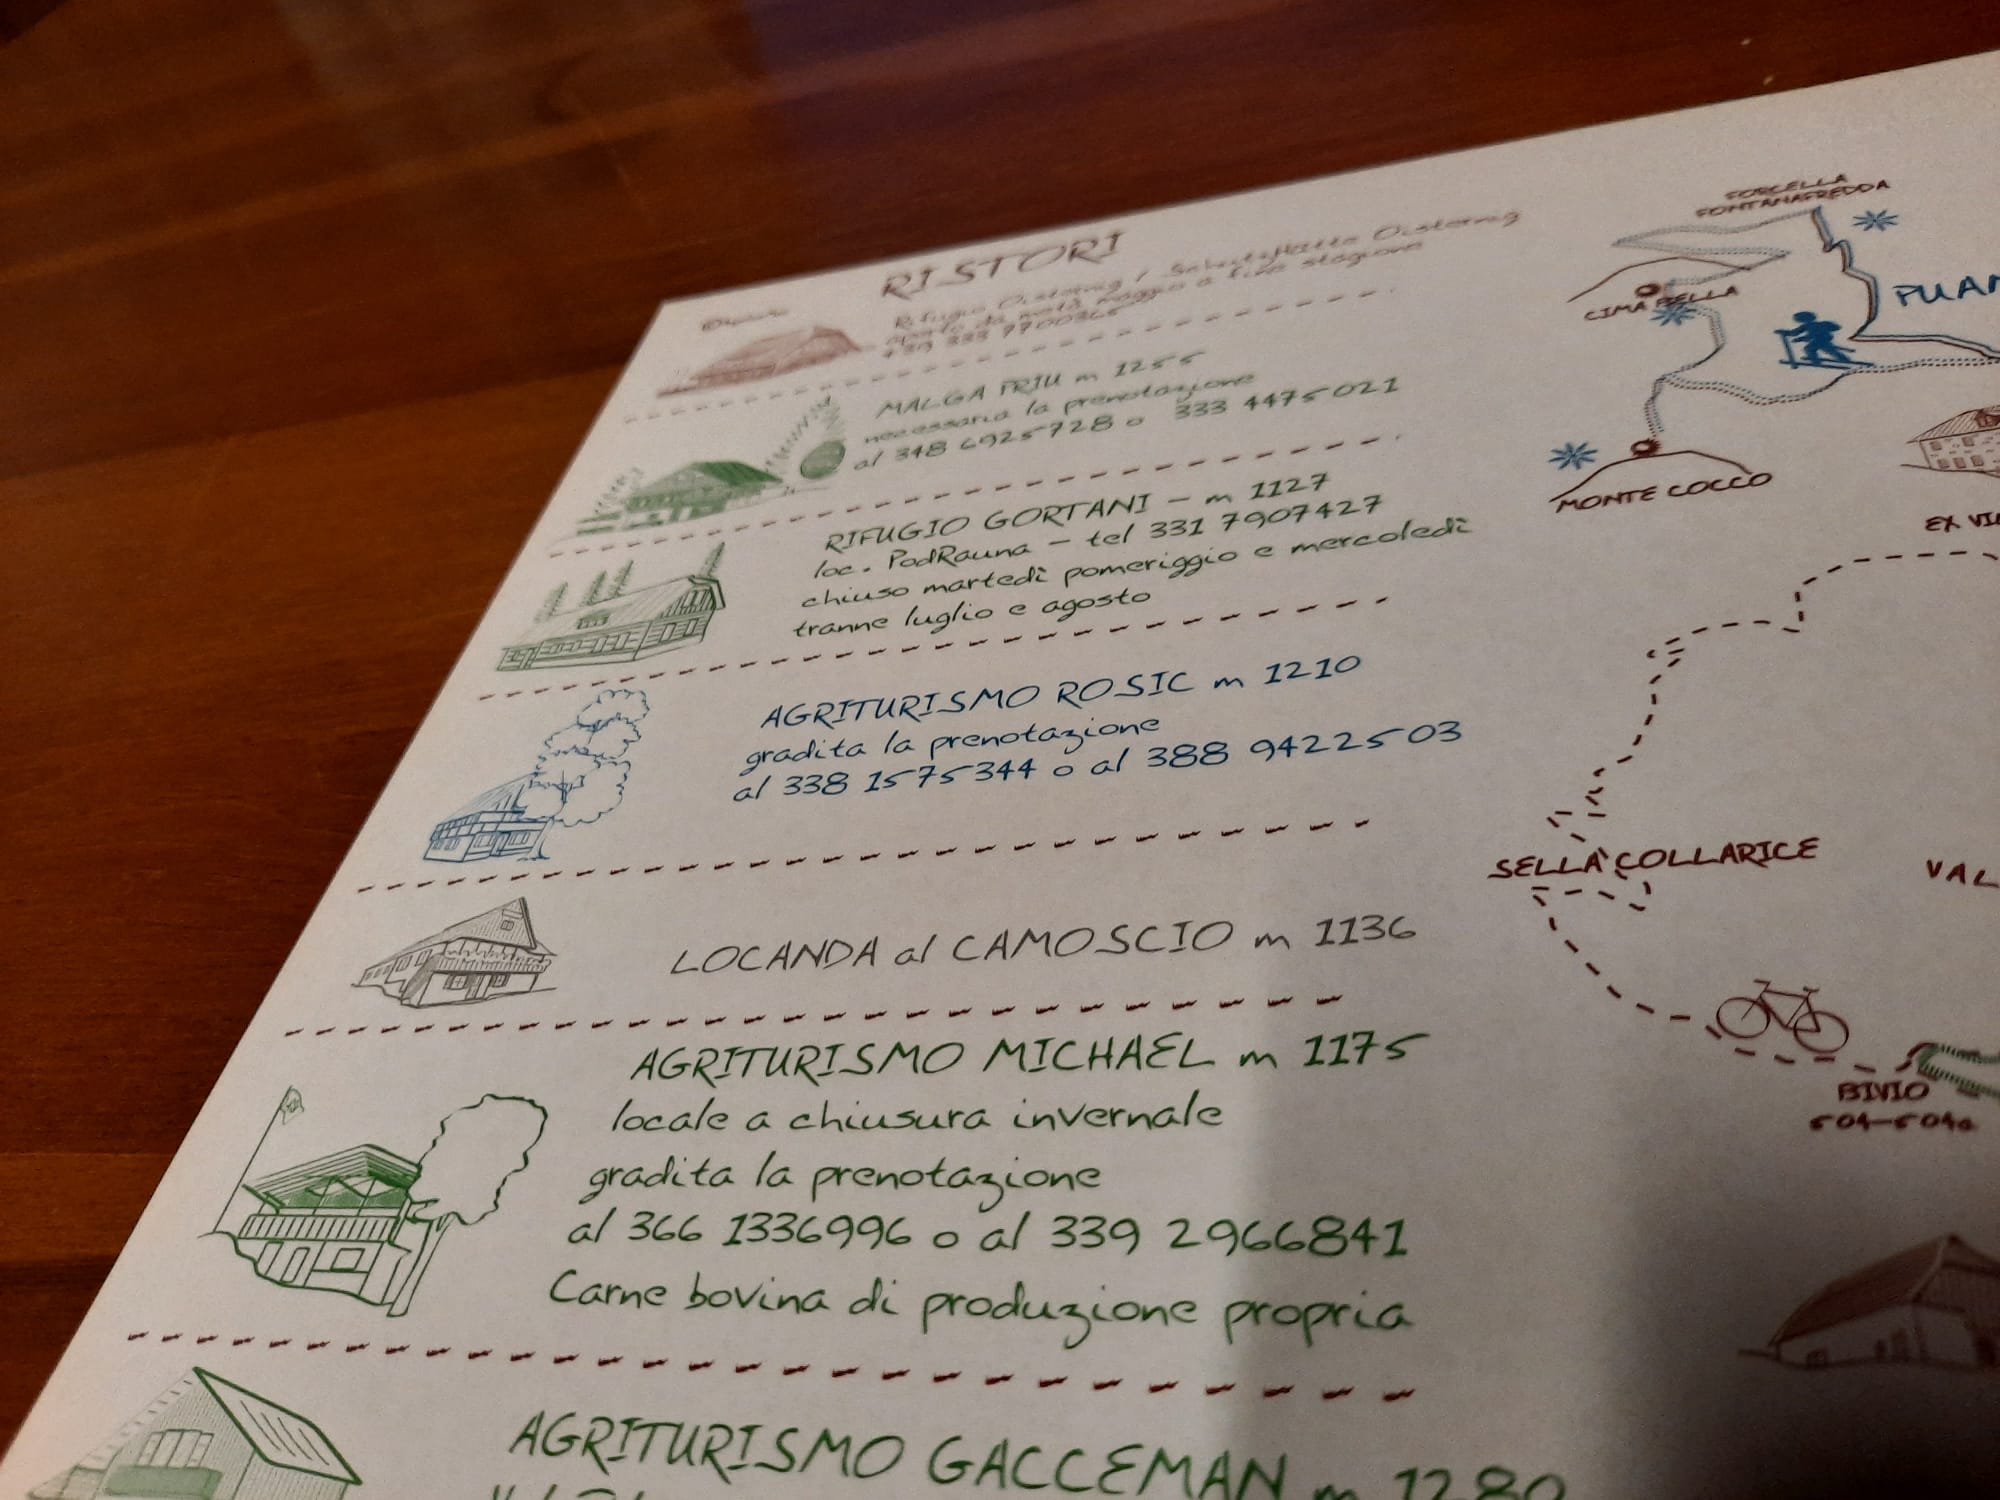 RISTORI
Rifugio Oisternig / Schutzhütte Oisternig
aperto da metà maggio a fine stagione
+39 333 7700365
MALGA PRIU m 1255
necessaria la prenotazione
al 348 6925728 o 333 4475021
RIFUGIO GORTANI - m 1127
loc. PodRauna - tel 331 7907427
chiuso martedì pomeriggio e mercoledì
tranne luglio e agosto
AGRITURISMO ROSIC m 1210
gradita la prenotazione
al 338 1575344 o al 388 9422503
LOCANDA al CAMOSCIO m 1136
AGRITURISMO MICHAEL m 1175
locale a chiusura invernale
gradita la prenotazione
al 366 1336996 o al 339 2966841
Carne bovina di produzione propria
AGRITURISMO GACCEMAN m 1280
FORCELLA
FONTANAFREDDA
CIMA BELLA
MONTE COCCO
EX
SELLA COLLARICE
BIVIO
504-504a